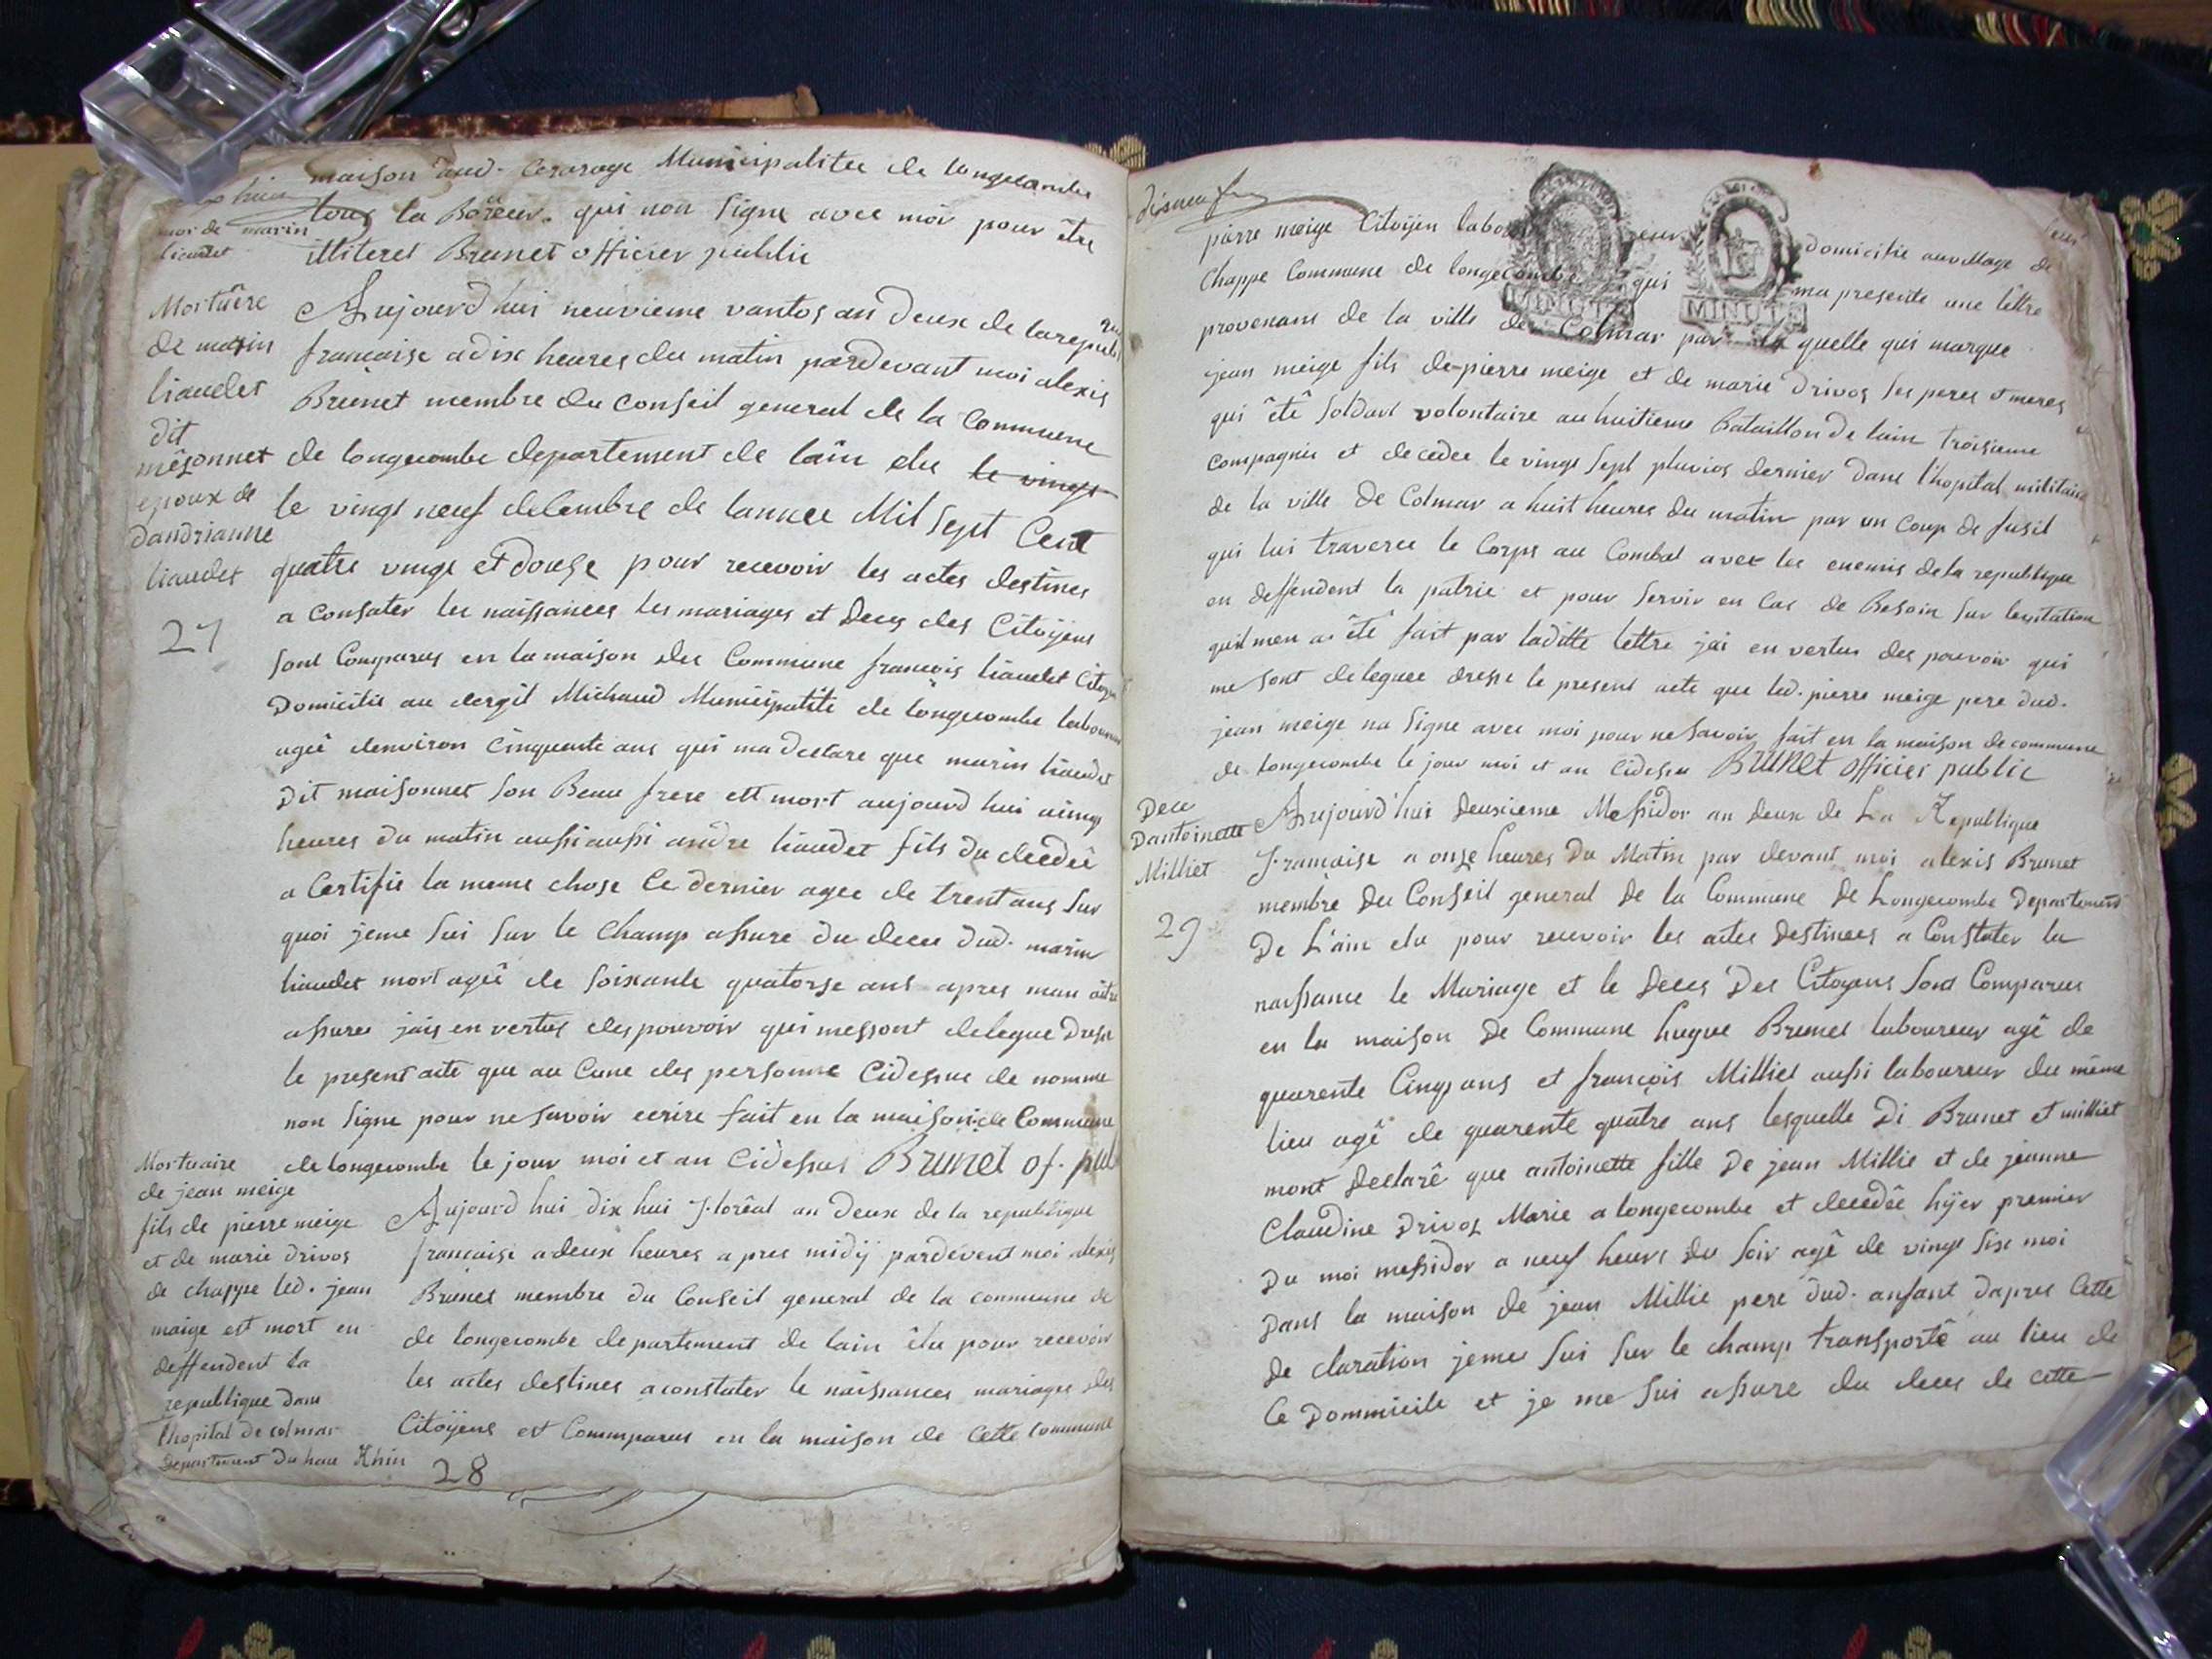 maison aud. Cerarage Municipalitee de longecombe
tous la Boreur. qui non signe avec moi pour être
illiteret Brunet officier public
mor de marin
liaudet
Mortuêre
de marin
liaudet
dit
mêsonnet
epoux de
dandrianne
liaudet
27
Aujourd hui neuvieme vantos an Deux de la republ
francaise a dix heures du matin pardevant moi alexis
Brunet membre du Conseil general de la Commune
de longecombe departement de lain elu le vingt
le vingt neuf decembre de lannee Mil Sept Cent
quatre vingt et douze pour recevoir les actes destines
a Consater les naissances les mariages et Deces des Citoÿens
sont Comparus en la maison de Commune francois liaudet Citoyen
Domicilié au dergit Michaud Municipalité de longecombe laboureur
ageê denviron Cinquante ans qui ma declare que marin liaudet
Dit maisonnet son Beau frere ett mort aujourd hui a cinq
heures du matin aussi aussi andre liaudet fils du decedeê
a Certifié la meme chose Ce dernier agee de trent ans sur
quoi jeme sui sur le Champ assure du deces dud. marin
liaudet mort ageê de soixante quatorse ans apres man aitre
assures jais en vertus des pouvoir qui messont delegue dresse
le present acte que au Cune des personne Cidessus de nomme
non signe pour ne savoir ecrire fait en la maison de Commune
de longecombe le jour moi et an Cidessus Brunet of. pub
Mortuaire
de jean meige
fils de pierre meige
et de marie drivos
de chappe led. jean
maige est mort en
deffendent la
republique dans
lhopital de colmar
Departement du hau Rhin
28
Aujourd hui dix hui Florêal an Deux de la republique
francaise a deux heures a pres midÿ pardevent moi alexis
Brunet membre du Conseil general de la commune de
de longecombe departement de lain êlu pour recevoir
les actes destines a constater le naissances mariages des
Citoÿens est Commparus en la maison de cette commune
pierre meige Citoÿen laboureur domicilie au village de
Chappe Commune de longecombe qui ma presente une lettre
provenans de la ville de Colmar par la quelle qui marque
jean meige fils de pierre meige et de marie Drivos ses peres et meres
qui êtê soldart volontaire au huitieme Bataillon de lain troisieme
compagnie et decedee le vingt sept pluvios dernier dans l'hopital militaire
de la ville de Colmar a huit heures du matin par un coup de fusil
qui lui traverce le Corps au Combat avec les enemis de la republique
en deffendent la patrie et pour servir en Cas de Besoin sur
quil men a êtê fait par laditte lettre jai en vertus des pouvoir qui
me sont deleguee dresse le present acte que led. pierre meige pere dud.
jean meige na signe avec moi pour ne savoir fait en la maison de commune
de longecombe le jour moi et an Cidessu Brunet officier public
MINUT
MINUT
Dece
Dantoinette
Milliet
29
Aujourd'hui deusieme Messidor an deux de La Republique
Francaise a onze heures du Matin par devant moi alexis Brunet
membre du Conseil general de la Commune de Longecombe Departement
De L'ain elu pour recevoir les actes Destinees a Constater la
naissance le Mariage et le Deces Des Citoyens sont Comparus
en la maison de Commune hugue Brunet laboureur agê de
quarente Cinq ans et françois Milliet aussi laboureur du même
lieu agê de quarente quatre ans lesquelle di Brunet et milliet
mont declarê que antoinette fille de jean Millie et de jeanne
Claudine Drivos Marie a longecombe et decedêe hÿer premier
Du moi messidor a neuf heurs du soir agê de vingt six moi
Dans la maison de jean Millie pere dud. anfant dapres Cette
de claration jeme sui sur le champ transportê au lieu de
Ce Dommicile et je me sui assure du deces de cette